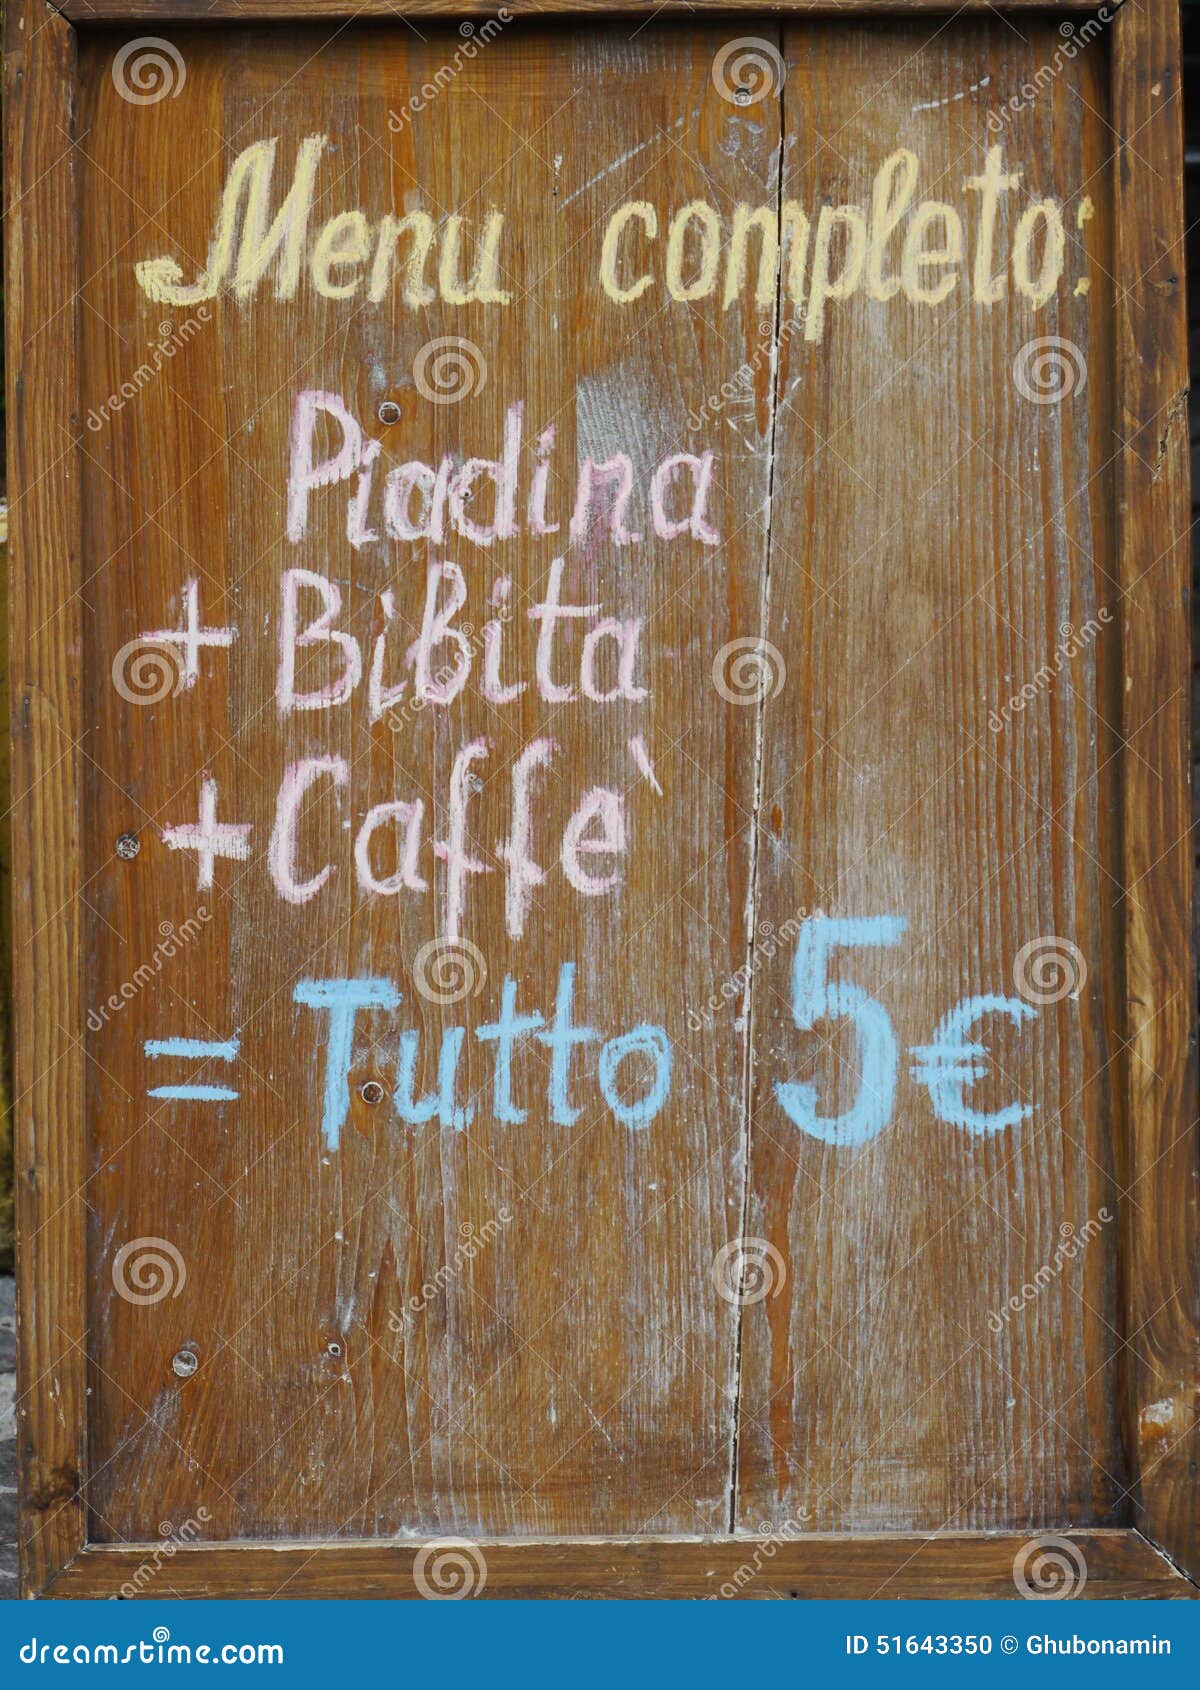 Menu completo:
Piadina
+ Bibita
+ Caffe`
= Tutto 5€
dreamstime.com
ID 51643350 © Ghubonamin